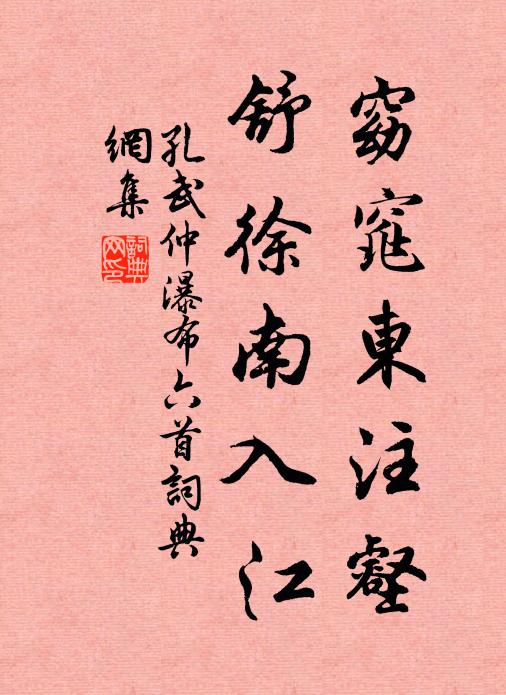 窈窕東注壑
舒徐南入江
孔武仲瀑布六首詞典
網集
詞典网印